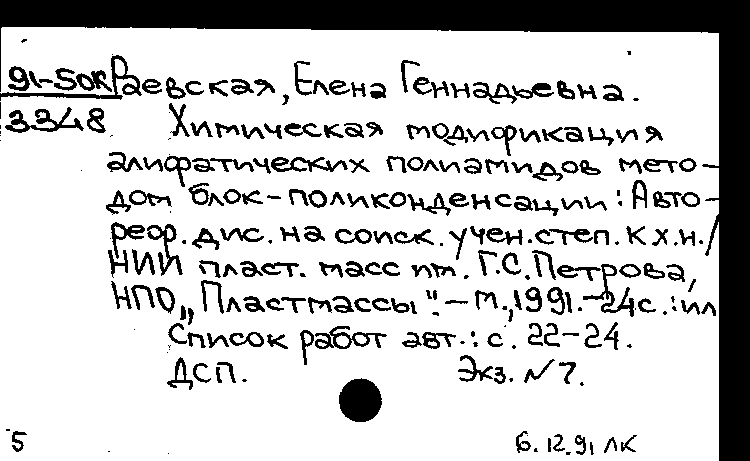 91-50к Раевская, Елена Геннадьевна.
3348 Химическая модификация
алифатических полиамидов мето-
дом блок-поликонденсации: Авто-
реф. дис. на соиск. учен. степ. к х.н./
НИИ пласт. масс им. Г.С. Петрова,
НПО „Пластмассы". - М., 1991. - 24с.: ил
Список работ авт.: с. 22-24.
ДСП. Экз. № 7.
5 6.12.91 ЛК